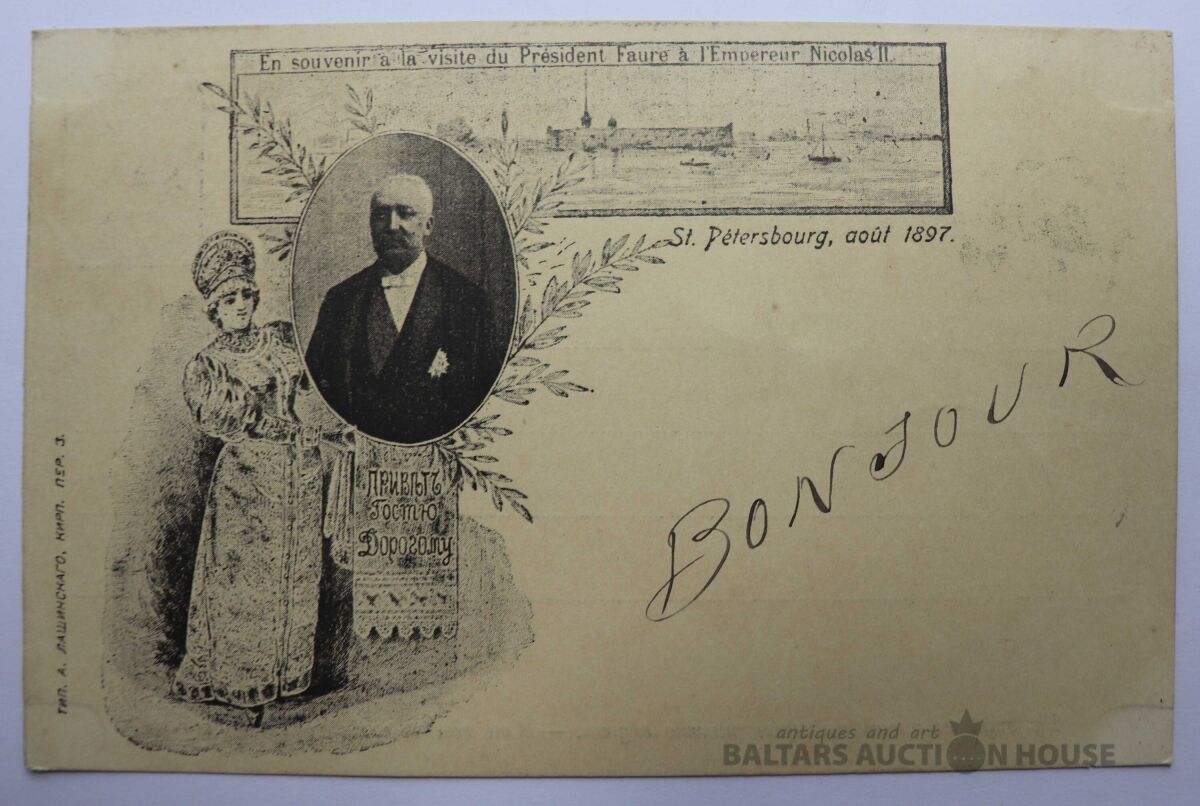 En souvenir à la visite du Président Faure à l'Empereur Nicolas II.
St. Pétersbourg, août 1897.
BONJOUR
ПРИВѢТЪ
Гостю
Дорогому
ТИП. А. ЛАШИНСКАГО, КИРП. ПЕР. 3.
antiques and art
BALTARS AUCTION HOUSE